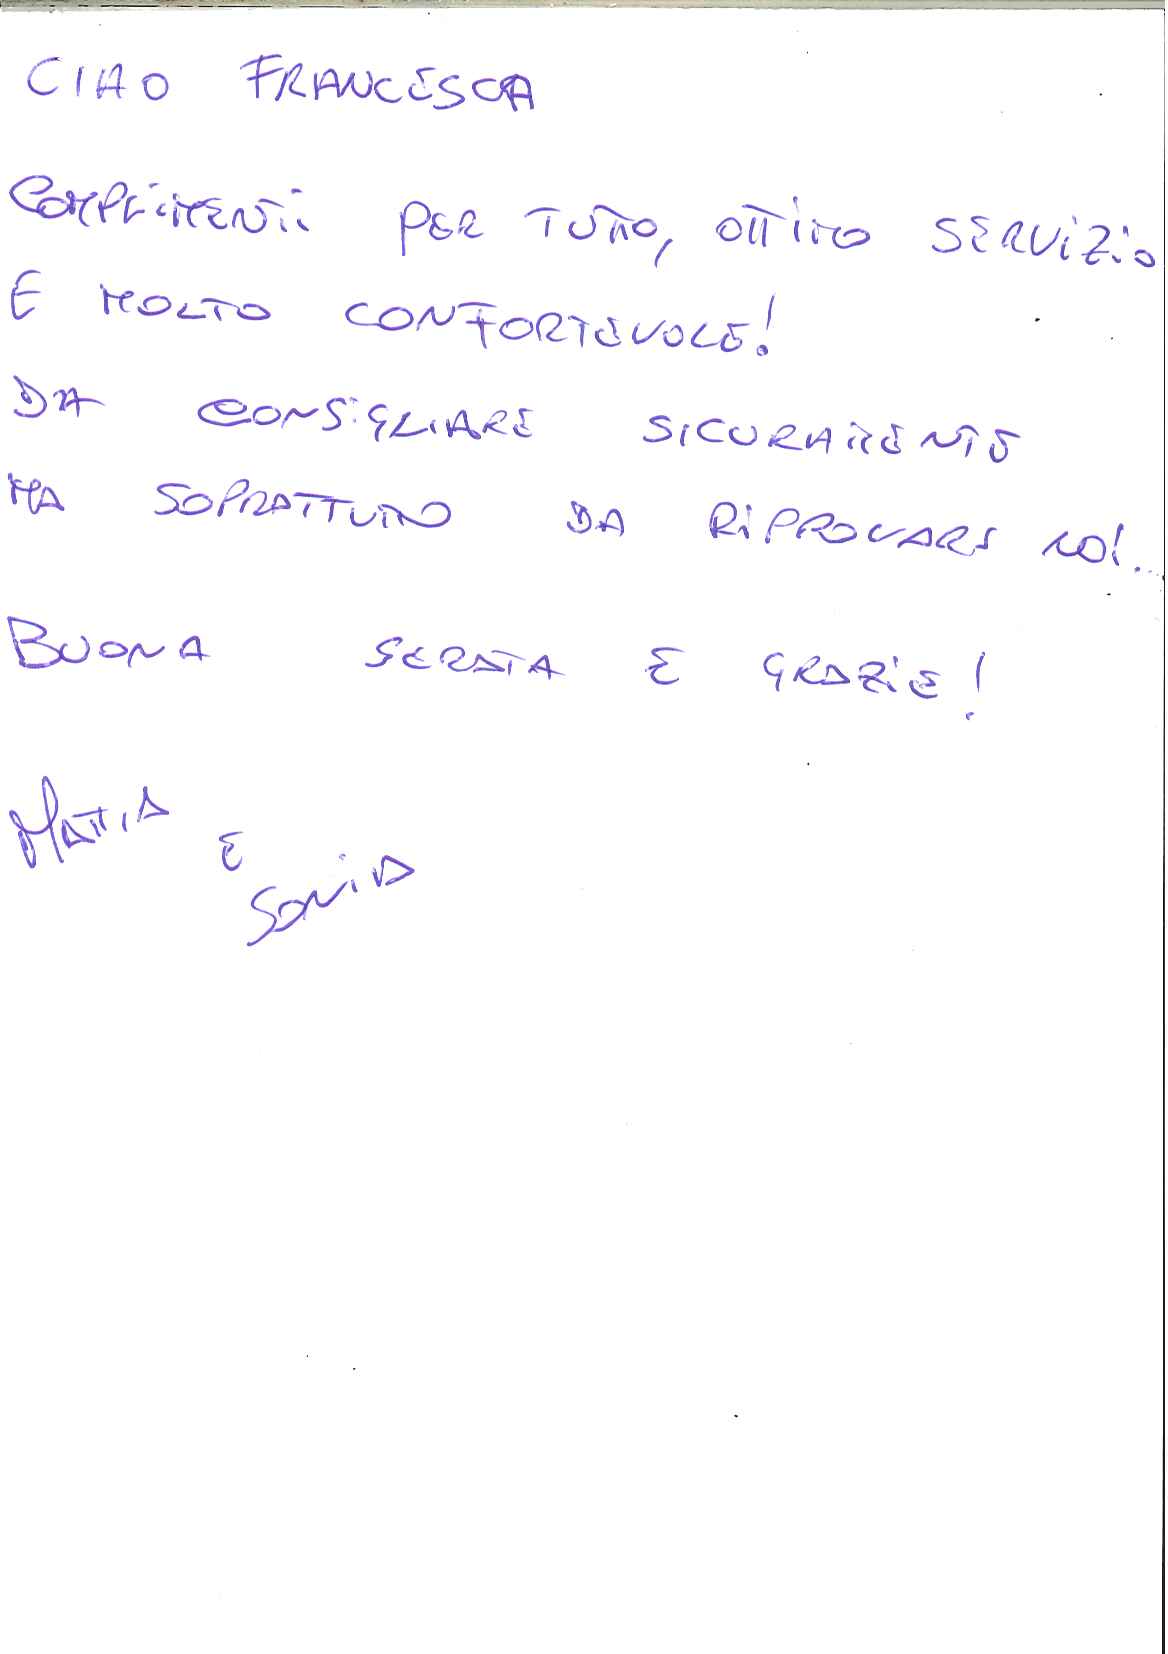 CIAO FRANCESCA
COMPLIMENTI PER TUTTO, OTTIMO SERVIZIO
E MOLTO CONFORTEVOLE!
DA CONSIGLIARE SICURAMENTE
MA SOPRATTUTTO DA RIPROVARE NOI...
BUONA SERATA E GRAZIE!
MATTIA
E
SONIA